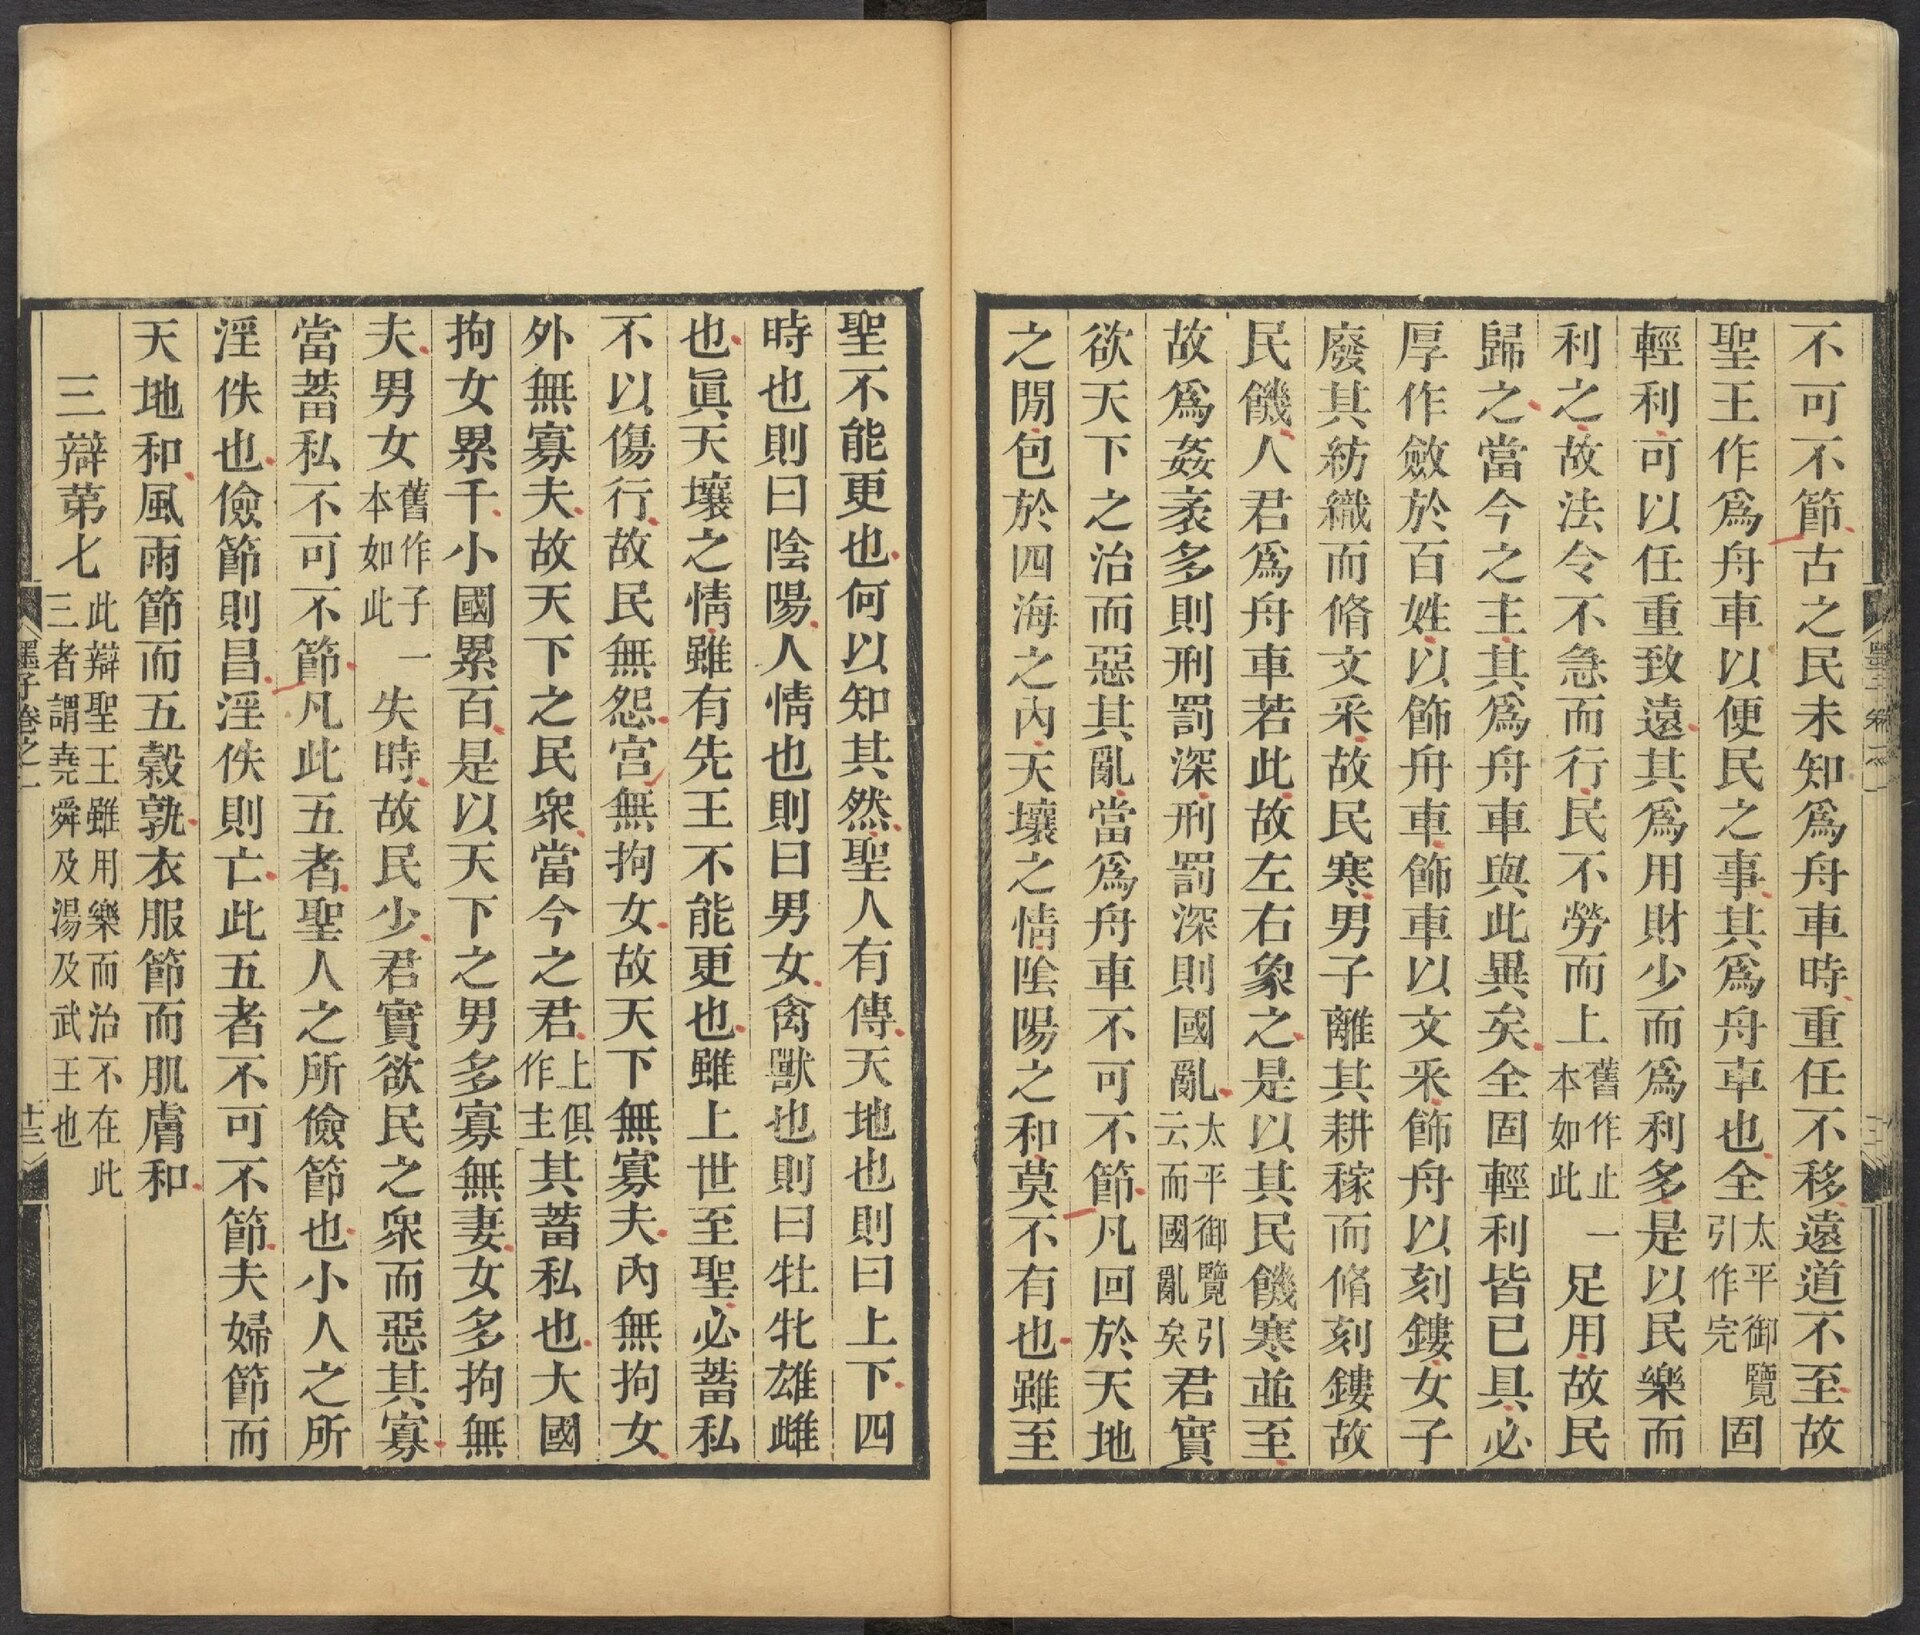 不可不節古之民未知爲舟車時重任不移遠道不至故
聖王作爲舟車以便民之事其爲舟車也全太平御覽引作完固
輕利可以任重致遠其爲用財少而爲利多是以民樂而
利之故法令不急而行民不勞而上舊作止一本如此足用故民
歸之當今之主其爲舟車與此異矣全固輕利皆已具必
厚作斂於百姓以飾舟車飾車以文采飾舟以刻鏤女子
廢其紡織而脩文采故民寒男子離其耕稼而脩刻鏤故
民饑人君爲舟車若此故左右象之是以其民饑寒並至
故爲姦衺多則刑罰深刑罰深則國亂太平御覽引云而國亂矣君實
欲天下之治而惡其亂當爲舟車不可不節凡回於天地
之閒包於四海之內天壤之情陰陽之和莫不有也雖至
聖不能更也何以知其然聖人有傳天地也則曰上下四
時也則曰陰陽人情也則曰男女禽獸也則曰牡牝雄雌
也眞天壤之情雖有先王不能更也雖上世至聖必蓄私
不以傷行故民無怨宮無拘女故天下無寡夫內無拘女
外無寡夫故天下之民衆當今之君上俱作主其蓄私也大國
拘女累千小國累百是以天下之男多寡無妻女多拘無
夫男女舊作子一本如此失時故民少君實欲民之衆而惡其寡
當蓄私不可不節凡此五者聖人之所儉節也小人之所
淫佚也儉節則昌淫佚則亡此五者不可不節夫婦節而
天地和風雨節而五穀孰衣服節而肌膚和
三辯第七此辯聖王雖用樂而治不在此三者謂堯舜及湯及武王也
墨子卷之一
十三